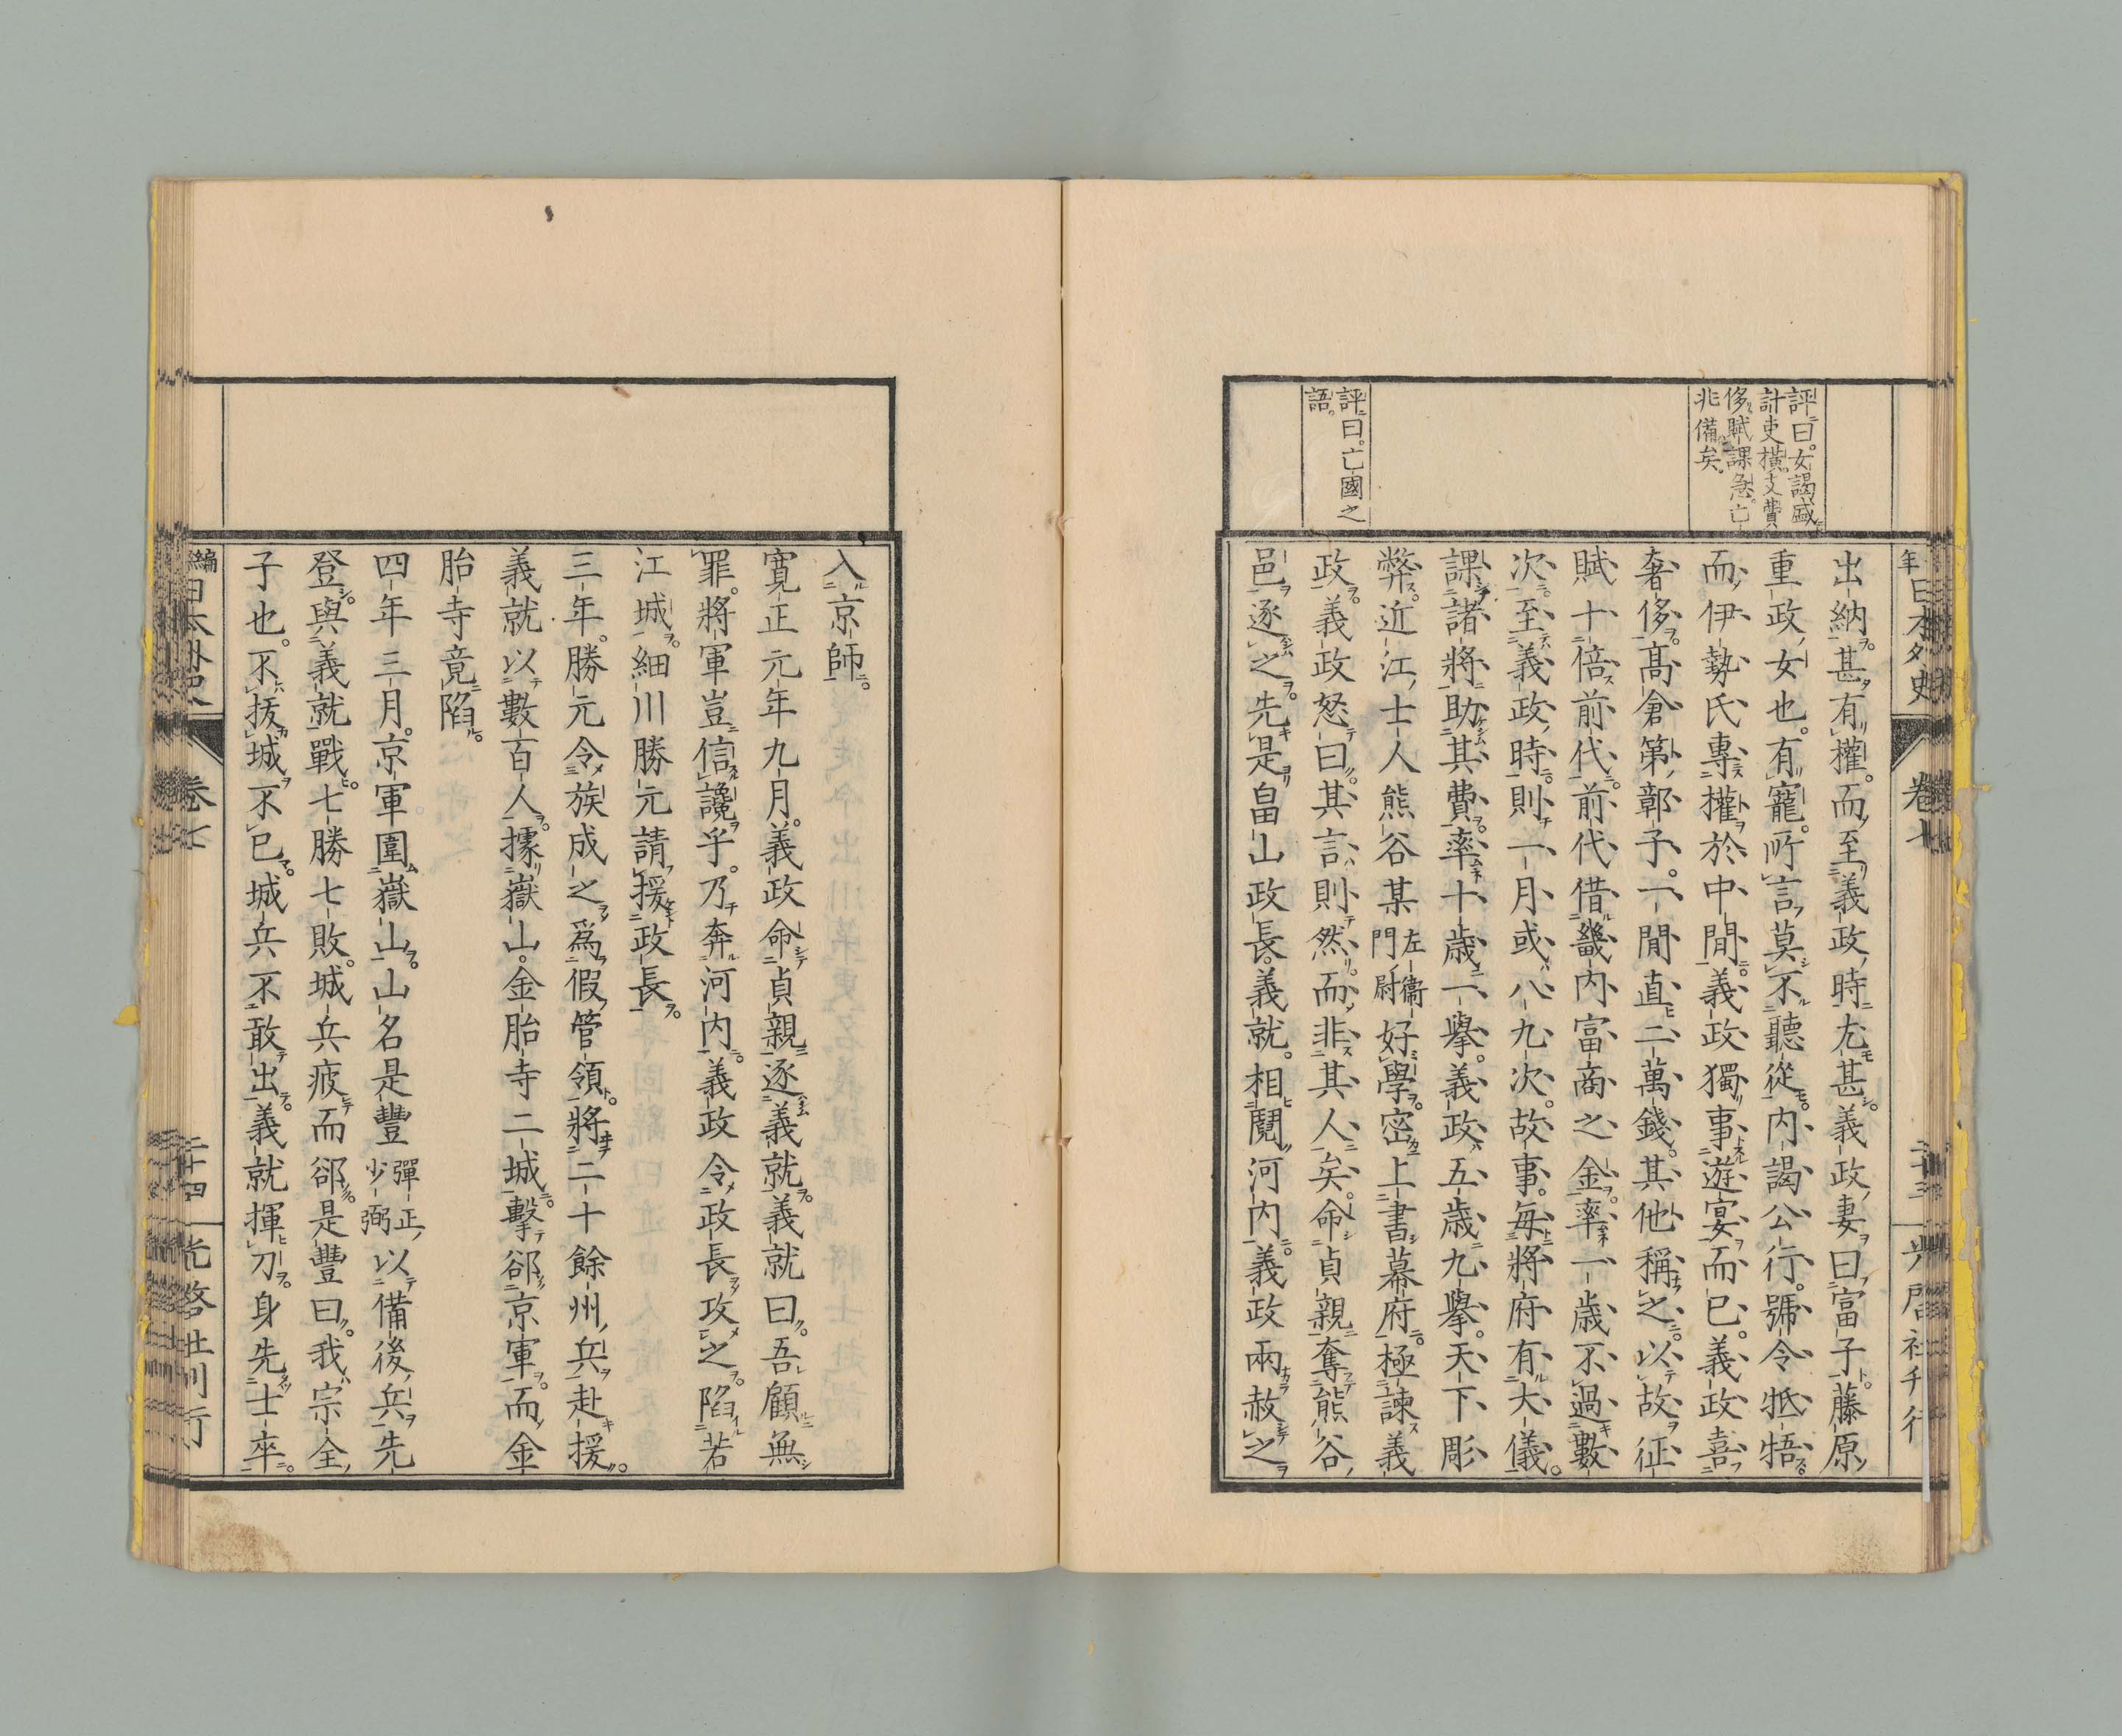 年日本外史
卷七
二十三
光啓社刊行
評曰。女謁盛
計吏橫支費
侈賦課急亡
非備矣。
評曰。亡國之
語。
出納甚有權。而至義政時尤甚。義政妻曰富子。藤原
重政女也。有寵。所言莫不聽從。內謁公行。號令牴牾。
而伊勢氏專權於中間。義政獨事遊宴而已。義政喜
奢侈。高倉第鄣子。一間直二萬錢。其他稱之。以故征
賦十倍前代。前代借畿內富商之金。率一歲不過數
次。至義政時。則一月或八九次。故事。每將府有大儀。
課諸將助其費。率十歲一擧。義政五歲九擧。天下彫
弊。近江士人熊谷某左衞門尉好學。密上書幕府。極諫義
政。義政怒曰。其言則然。而非其人矣。命貞親奪熊谷
邑逐之。先是畠山政長。義就。相鬩河內。義政兩赦之
入京師。
寬正元年九月。義政命貞親逐義就。義就曰。吾顧無
罪。將軍豈信讒乎。乃奔河內。義政令政長攻之。陷若
江城。細川勝元請援政長。
三年。勝元令族成之爲假管領。將二十餘州兵赴援。
義就以數百人。據嶽山。金胎寺二城。擊郤京軍。而金
胎寺竟陷。
四年三月。京軍圍嶽山。山名是豐彈正少弼以備後兵先
登。與義就戰。七勝七敗。城兵疲而郤。是豐曰。我宗全
子也。不拔城不已。城兵不敢出。義就揮刀。身先士卒。
編日本外史
卷七
二十四
光啓社刊行